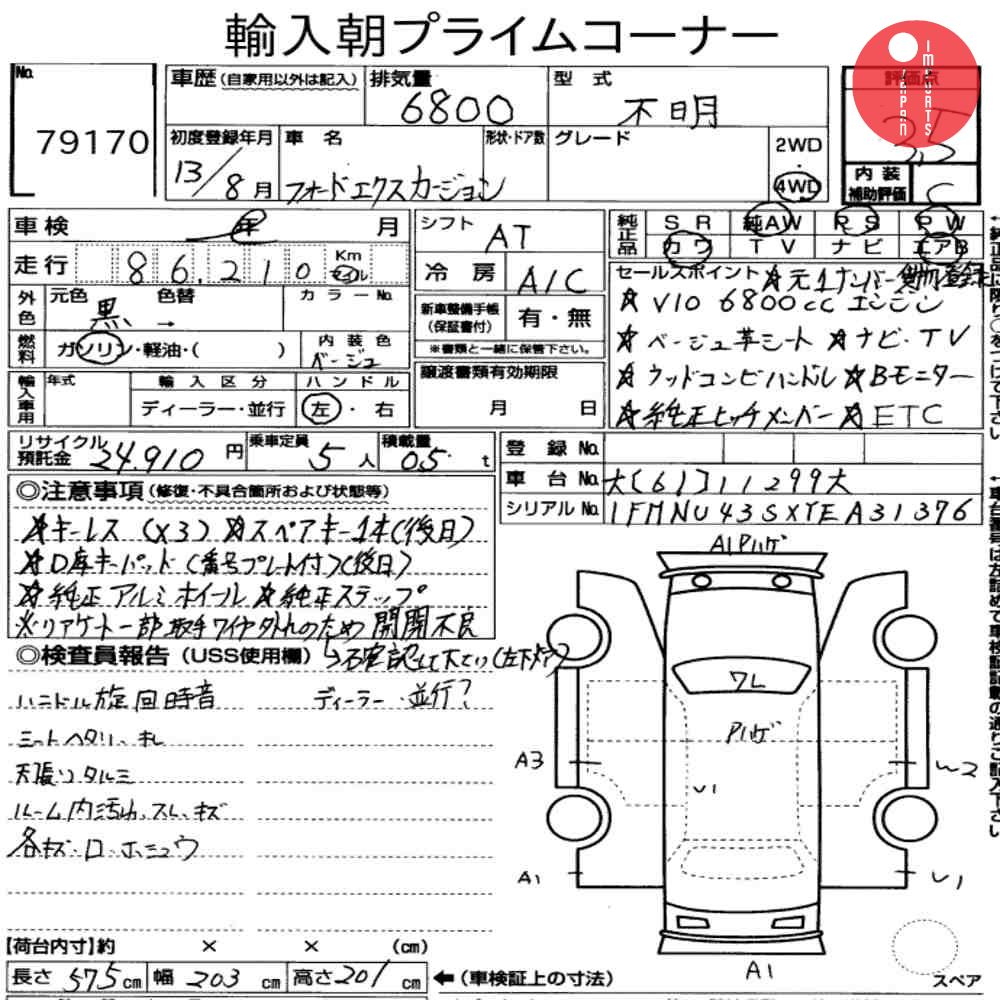 輸入朝プライムコーナー
IMPORTS JAPAN
No. 79170
車歴(自家用以外は記入)
排気量 6800
型式 不明
評価点 3.5
初度登録年月 13/8月
車名 フォードエクスカージョン
形状・ドア数
グレード
2WD
・
4WD
内装補助評価 C
車検 年 月
走行 86,210 Km マイル
外色 元色 黒 → 色替
カラーNo.
燃料 ガソリン・軽油・( )
内装色 ベージュ
輸入車用 年式
輸入区分 ディーラー・並行
ハンドル 左・右
シフト AT
冷房 A/C
新車整備手帳(保証書付) 有・無
※書類と一緒に保管下さい。
譲渡書類有効期限
月 日
純正品 SR 純AW PS PW
カワ TV ナビ エアB
←純正品に限り○をつけて下さい
セールスポイント ☆元1ナンバー貨物登録
☆V10 6800cc エンジン
☆ベージュ革シート ☆ナビ・TV
☆ウッドコンビハンドル ☆Bモニター
☆純正ヒッチメンバー ☆ETC
リサイクル預託金 24,910円
乗車定員 5人
積載量 05 t
登録No.
車台No. 大[61]11299大
シリアルNo. 1FMNU43SXYEA31376
◎注意事項(修復・不具合箇所および状態等)
☆キーレス(×3) ☆スペアキー1本(後日)
☆D席キーパッド(番号プレート付)(後日)
☆純正アルミホイール ☆純正ステップ
※リアゲート一部取手ワイヤ外れのため開閉不良
◎検査員報告(USS使用欄)
ハンドル旋回時音
ディーラー・並行?
シートヘタリ、キレ
天張りタルミ
ルーム内汚れ、スレ、キズ
各キズ・ロ・ホシュウ
A1 Pハゲ
ワレ
Pハゲ
U1
A3
A1
A1
U1
スペア
【荷台内寸】約 × × (cm)
長さ 575cm 幅 203cm 高さ 201cm
←(車検証上の寸法)